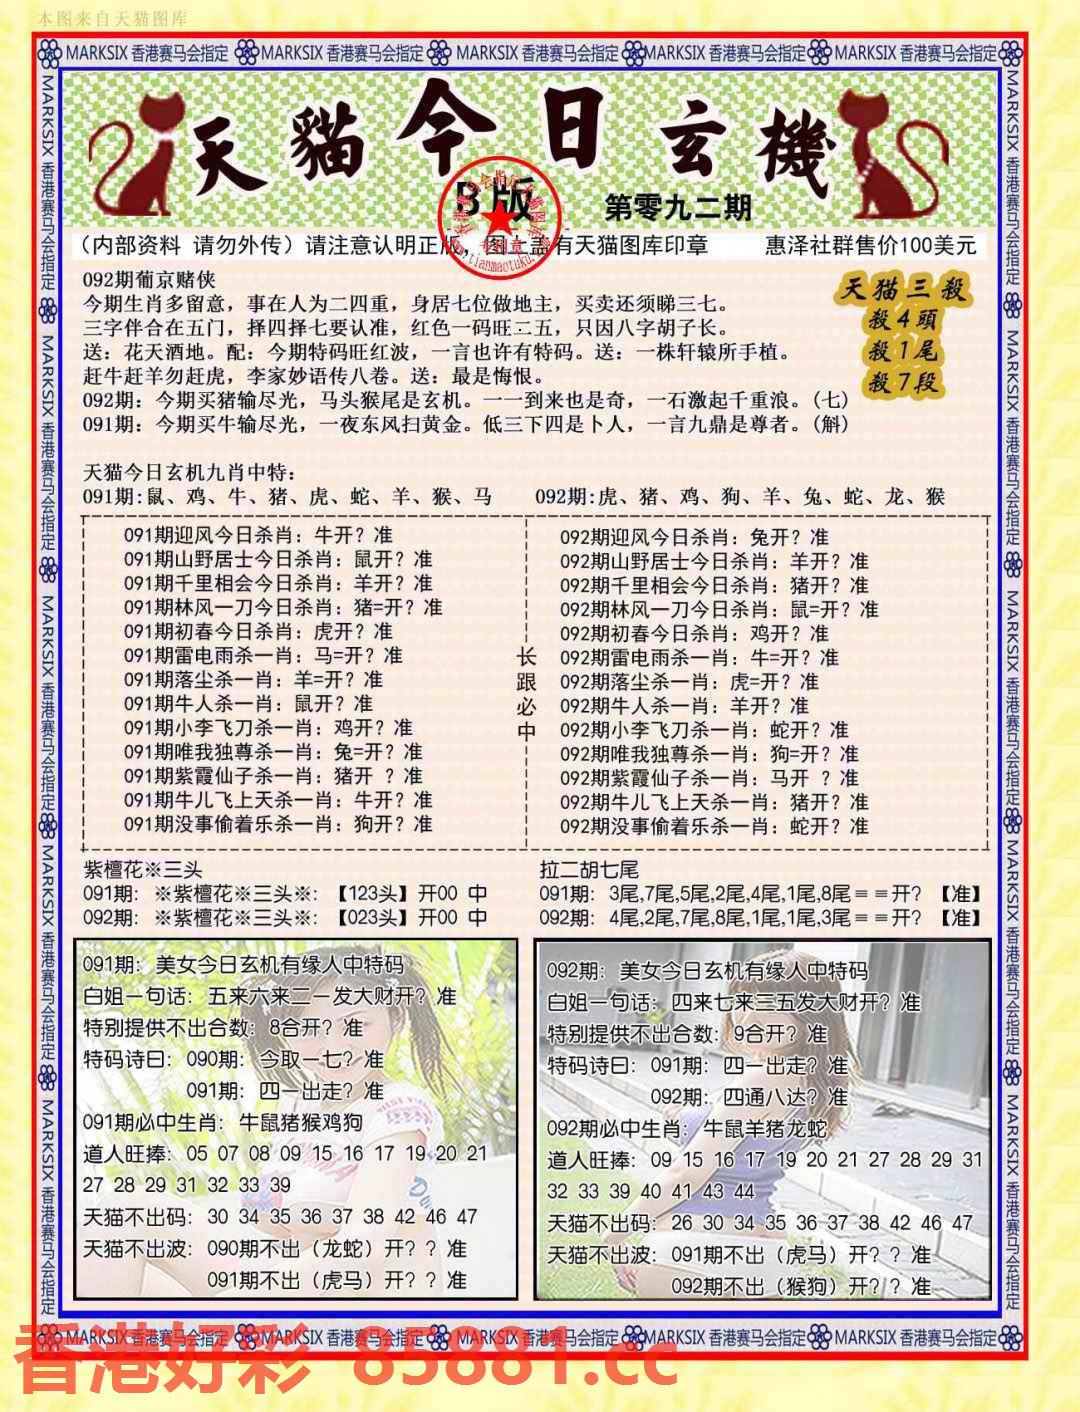 本图来自天猫图库
MARKSIX 香港赛马会指定 MARKSIX 香港赛马会指定 MARKSIX 香港赛马会指定 MARKSIX 香港赛马会指定 MARKSIX 香港赛马会指定
天貓今日玄機
B版
第零九二期
(内部资料 请勿外传)请注意认明正版，图上盖有天猫图库印章 惠泽社群售价100美元
092期葡京赌侠
今期生肖多留意，事在人为二四重，身居七位做地主，买卖还须睇三七。
三字伴合在五门，择四择七要认准，红色一码旺二五，只因八字胡子长。
送：花天酒地。配：今期特码旺红波，一言也许有特码。送：一株轩辕所手植。
赶牛赶羊勿赶虎，李家妙语传八卷。送：最是悔恨。
092期：今期买猪输尽光，马头猴尾是玄机。一一到来也是奇，一石激起千重浪。(七)
091期：今期买牛输尽光，一夜东风扫黄金。低三下四是卜人，一言九鼎是尊者。(斛)
天猫三殺
殺4頭
殺1尾
殺7段
天猫今日玄机九肖中特：
091期:鼠、鸡、牛、猪、虎、蛇、羊、猴、马
092期:虎、猪、鸡、狗、羊、兔、蛇、龙、猴
091期迎风今日杀肖：牛开？准
091期山野居士今日杀肖：鼠开？准
091期千里相会今日杀肖：羊开？准
091期林风一刀今日杀肖：猪=开？准
091期初春今日杀肖：虎开？准
091期雷电雨杀一肖：马=开？准
091期落尘杀一肖：羊=开？准
091期牛人杀一肖：鼠开？准
091期小李飞刀杀一肖：鸡开？准
091期唯我独尊杀一肖：兔=开？准
091期紫霞仙子杀一肖：猪开 ？准
091期牛儿飞上天杀一肖：牛开？准
091期没事偷着乐杀一肖：狗开？准
长跟必中
092期迎风今日杀肖：兔开？准
092期山野居士今日杀肖：羊开？准
092期千里相会今日杀肖：猪开？准
092期林风一刀今日杀肖：鼠=开？准
092期初春今日杀肖：鸡开？准
092期雷电雨杀一肖：牛=开？准
092期落尘杀一肖：虎=开？准
092期牛人杀一肖：羊开？准
092期小李飞刀杀一肖：蛇开？准
092期唯我独尊杀一肖：狗=开？准
092期紫霞仙子杀一肖：马开 ？准
092期牛儿飞上天杀一肖：猪开？准
092期没事偷着乐杀一肖：蛇开？准
紫檀花※三头
091期：※紫檀花※三头※：【123头】开00 中
092期：※紫檀花※三头※：【023头】开00 中
拉二胡七尾
091期：3尾,7尾,5尾,2尾,4尾,1尾,8尾==开？【准】
092期：4尾,2尾,7尾,8尾,1尾,1尾,3尾==开？【准】
091期：美女今日玄机有缘人中特码
白姐一句话：五来六来二一发大财开？准
特别提供不出合数：8合开？准
特码诗曰：090期：今取一七？准
091期：四一出走？准
091期必中生肖：牛鼠猪猴鸡狗
道人旺捧：05 07 08 09 15 16 17 19 20 21
27 28 29 31 32 33 39
天猫不出码：30 34 35 36 37 38 42 46 47
天猫不出波：090期不出（龙蛇）开？？准
091期不出（虎马）开？？准
092期：美女今日玄机有缘人中特码
白姐一句话：四来七来三五发大财开？准
特别提供不出合数：9合开？准
特码诗曰：091期：四一出走？准
092期：四通八达？准
092期必中生肖：牛鼠羊猪龙蛇
道人旺捧：09 15 16 17 19 20 21 27 28 29 31
32 33 39 40 41 43 44
天猫不出码：26 30 34 35 36 37 38 42 46 47
天猫不出波：091期不出（虎马）开？？准
092期不出（猴狗）开？？准
MARKSIX 香港赛马会指定 MARKSIX 香港赛马会指定 MARKSIX 香港赛马会指定 MARKSIX 香港赛马会指定 MARKSIX 香港赛马会指定
香港好彩 85881.cc